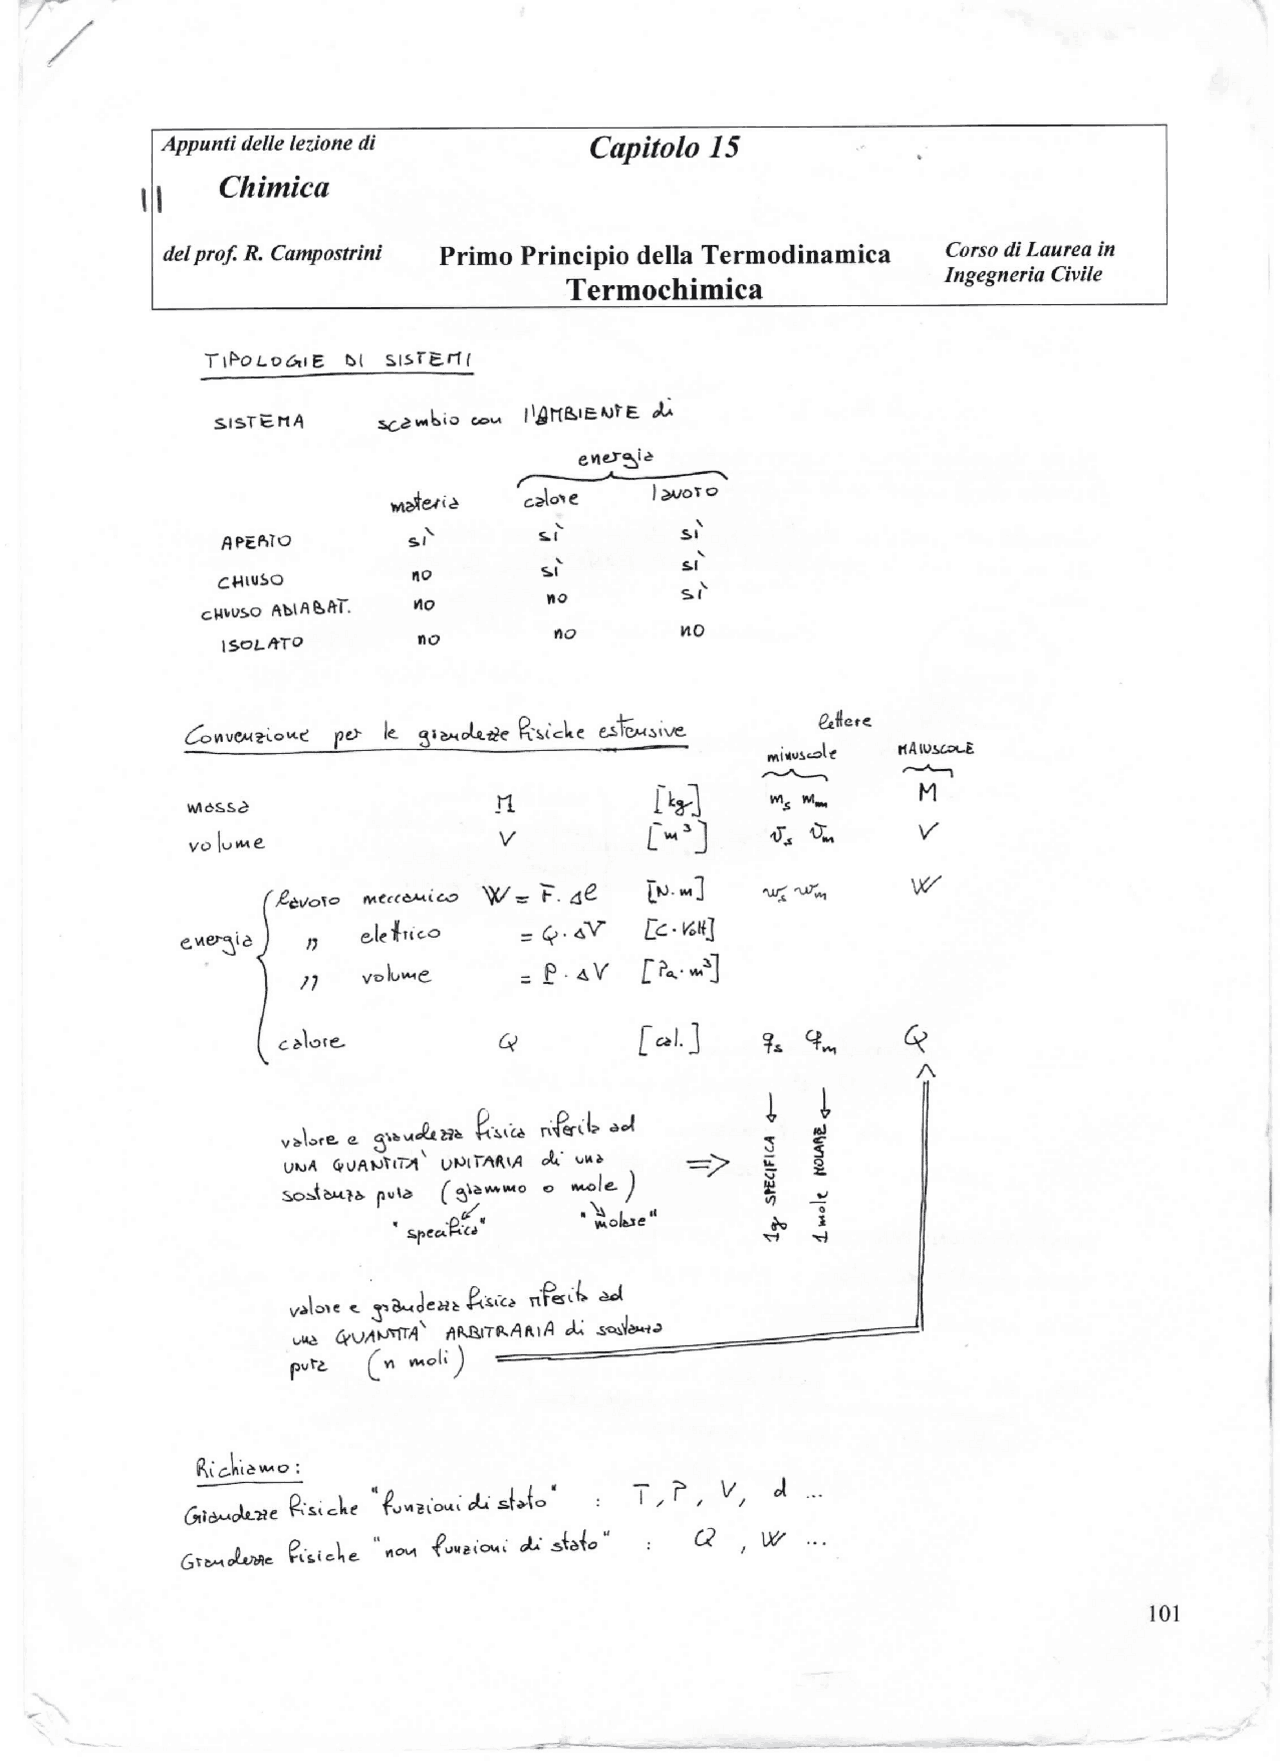 Appunti delle lezione di
Capitolo 15
Chimica
del prof. R. Campostrini
Primo Principio della Termodinamica
Termochimica
Corso di Laurea in
Ingegneria Civile
TIPOLOGIE DI SISTEMI
SISTEMA scambio con l'AMBIENTE di
energia
materia calore lavoro
APERTO sì sì sì
CHIUSO no sì sì
CHIUSO ADIABAT. no no sì
ISOLATO no no no
Convenzione per le grandezze fisiche estensive
lettere
minuscole MAIUSCOLE
massa M [kg] m_s m_m M
volume V [m³] v_s v_m V
energia
lavoro meccanico W = F · Δl [N·m] w_s w_m W
" elettrico = Q · ΔV [C·Volt]
" volume = P · ΔV [Pa·m³]
calore Q [cal.] q_s q_m Q
valore e grandezza fisica riferita ad
UNA QUANTITA' UNITARIA di una =>
sostanza pura (grammo o mole)
"specifica" "molare"
1g SPECIFICA ←
1 mole MOLARE ←
valore e grandezza fisica riferita ad
una QUANTITA' ARBITRARIA di sostanza
pura (n moli)
Richiamo:
Grandezze fisiche "funzioni di stato" : T, P, V, d ...
Grandezze fisiche "non funzioni di stato" : Q, W ...
101